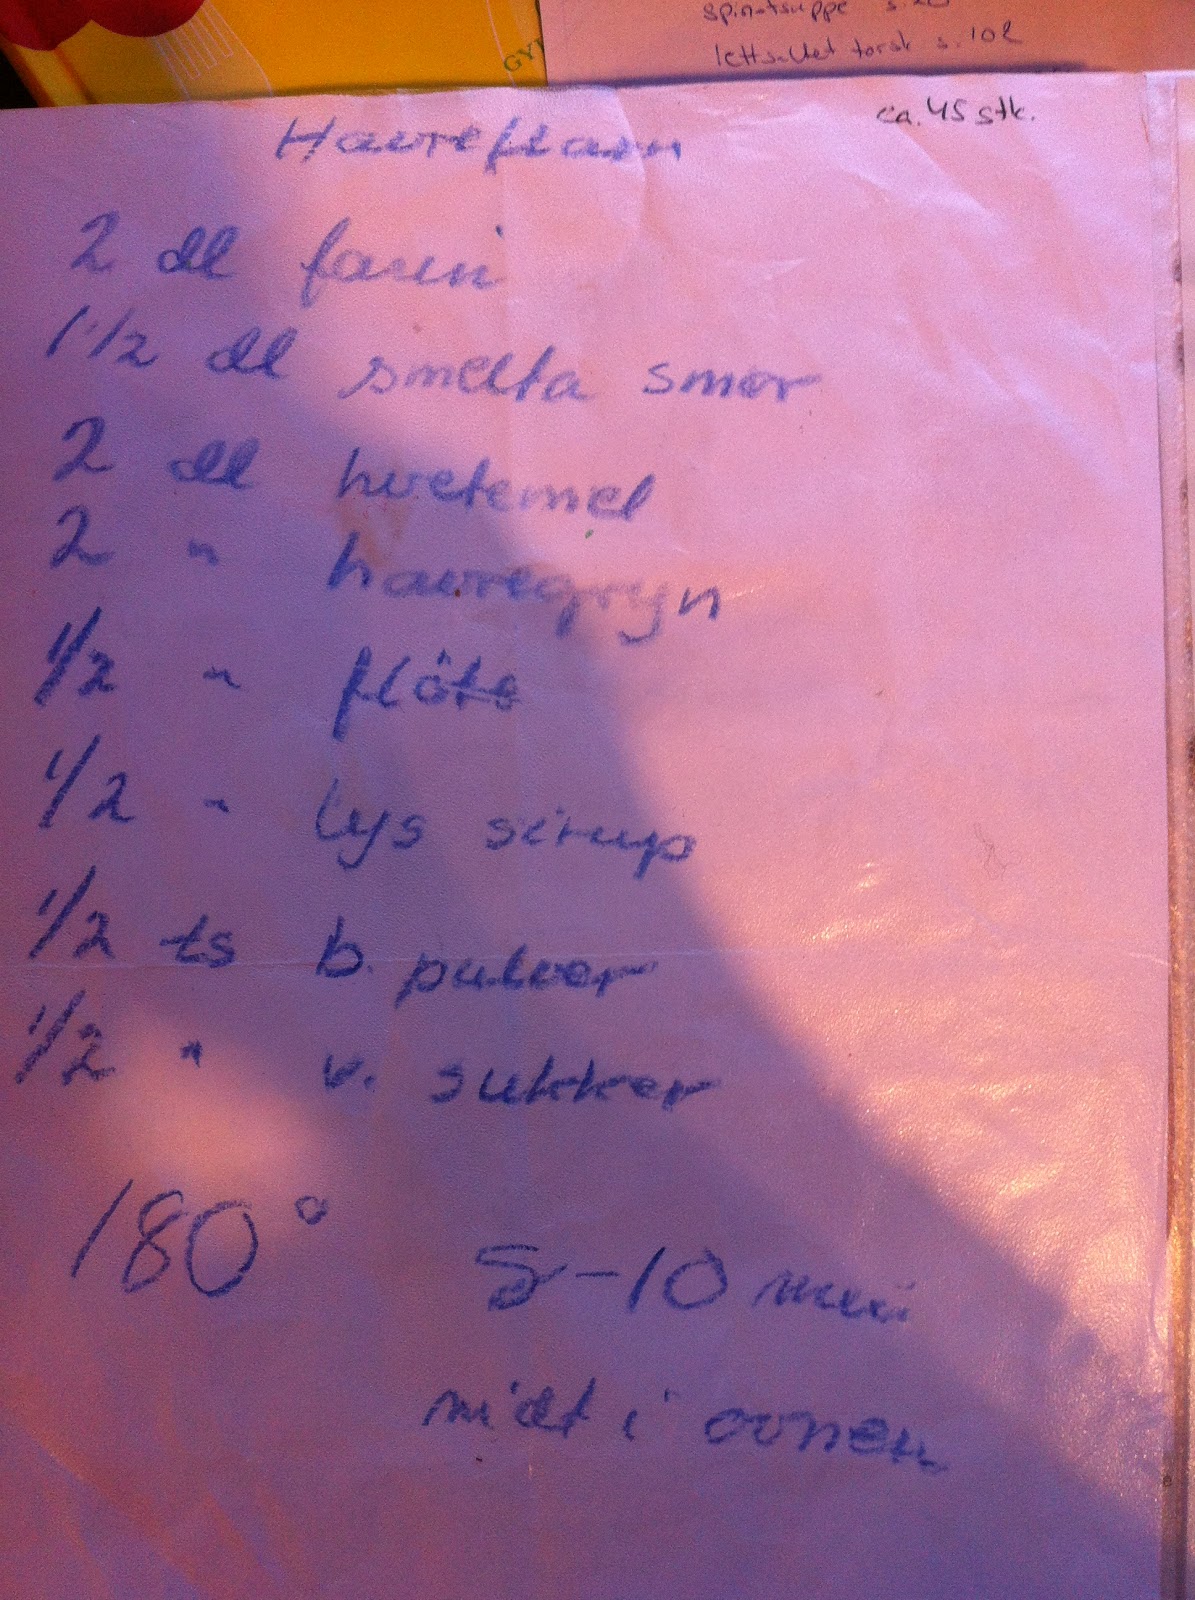 GY
spinatsuppe s.20
lettsaltet torsk s.102
ca. 45 stk.
Havreflarn
2 dl farin
1 1/2 dl smelta smør
2 dl hvetemel
2 " havregryn
1/2 " fløte
1/2 " lys sirup
1/2 ts b. pulver
1/2 " v. sukker
180°
8-10 min
midt i ovnen